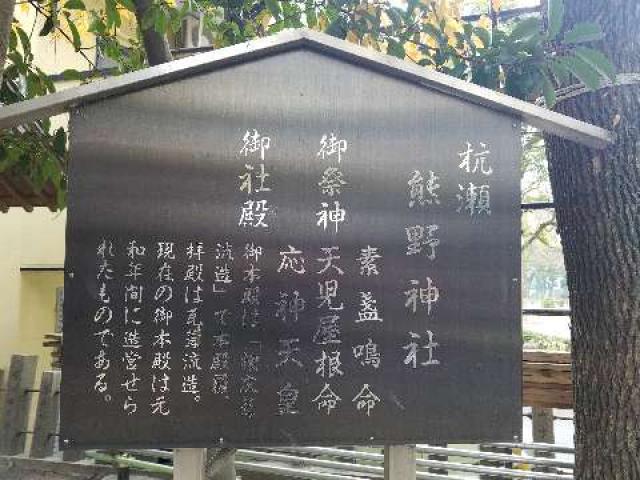 杭瀬
熊野神社
素盞嗚命
御祭神 天児屋根命
応神天皇
御社殿 御本殿は「
流造」で本殿
拝殿は瓦葺流造。
現在の御本殿は元
和年間に造営せら
れたものである。